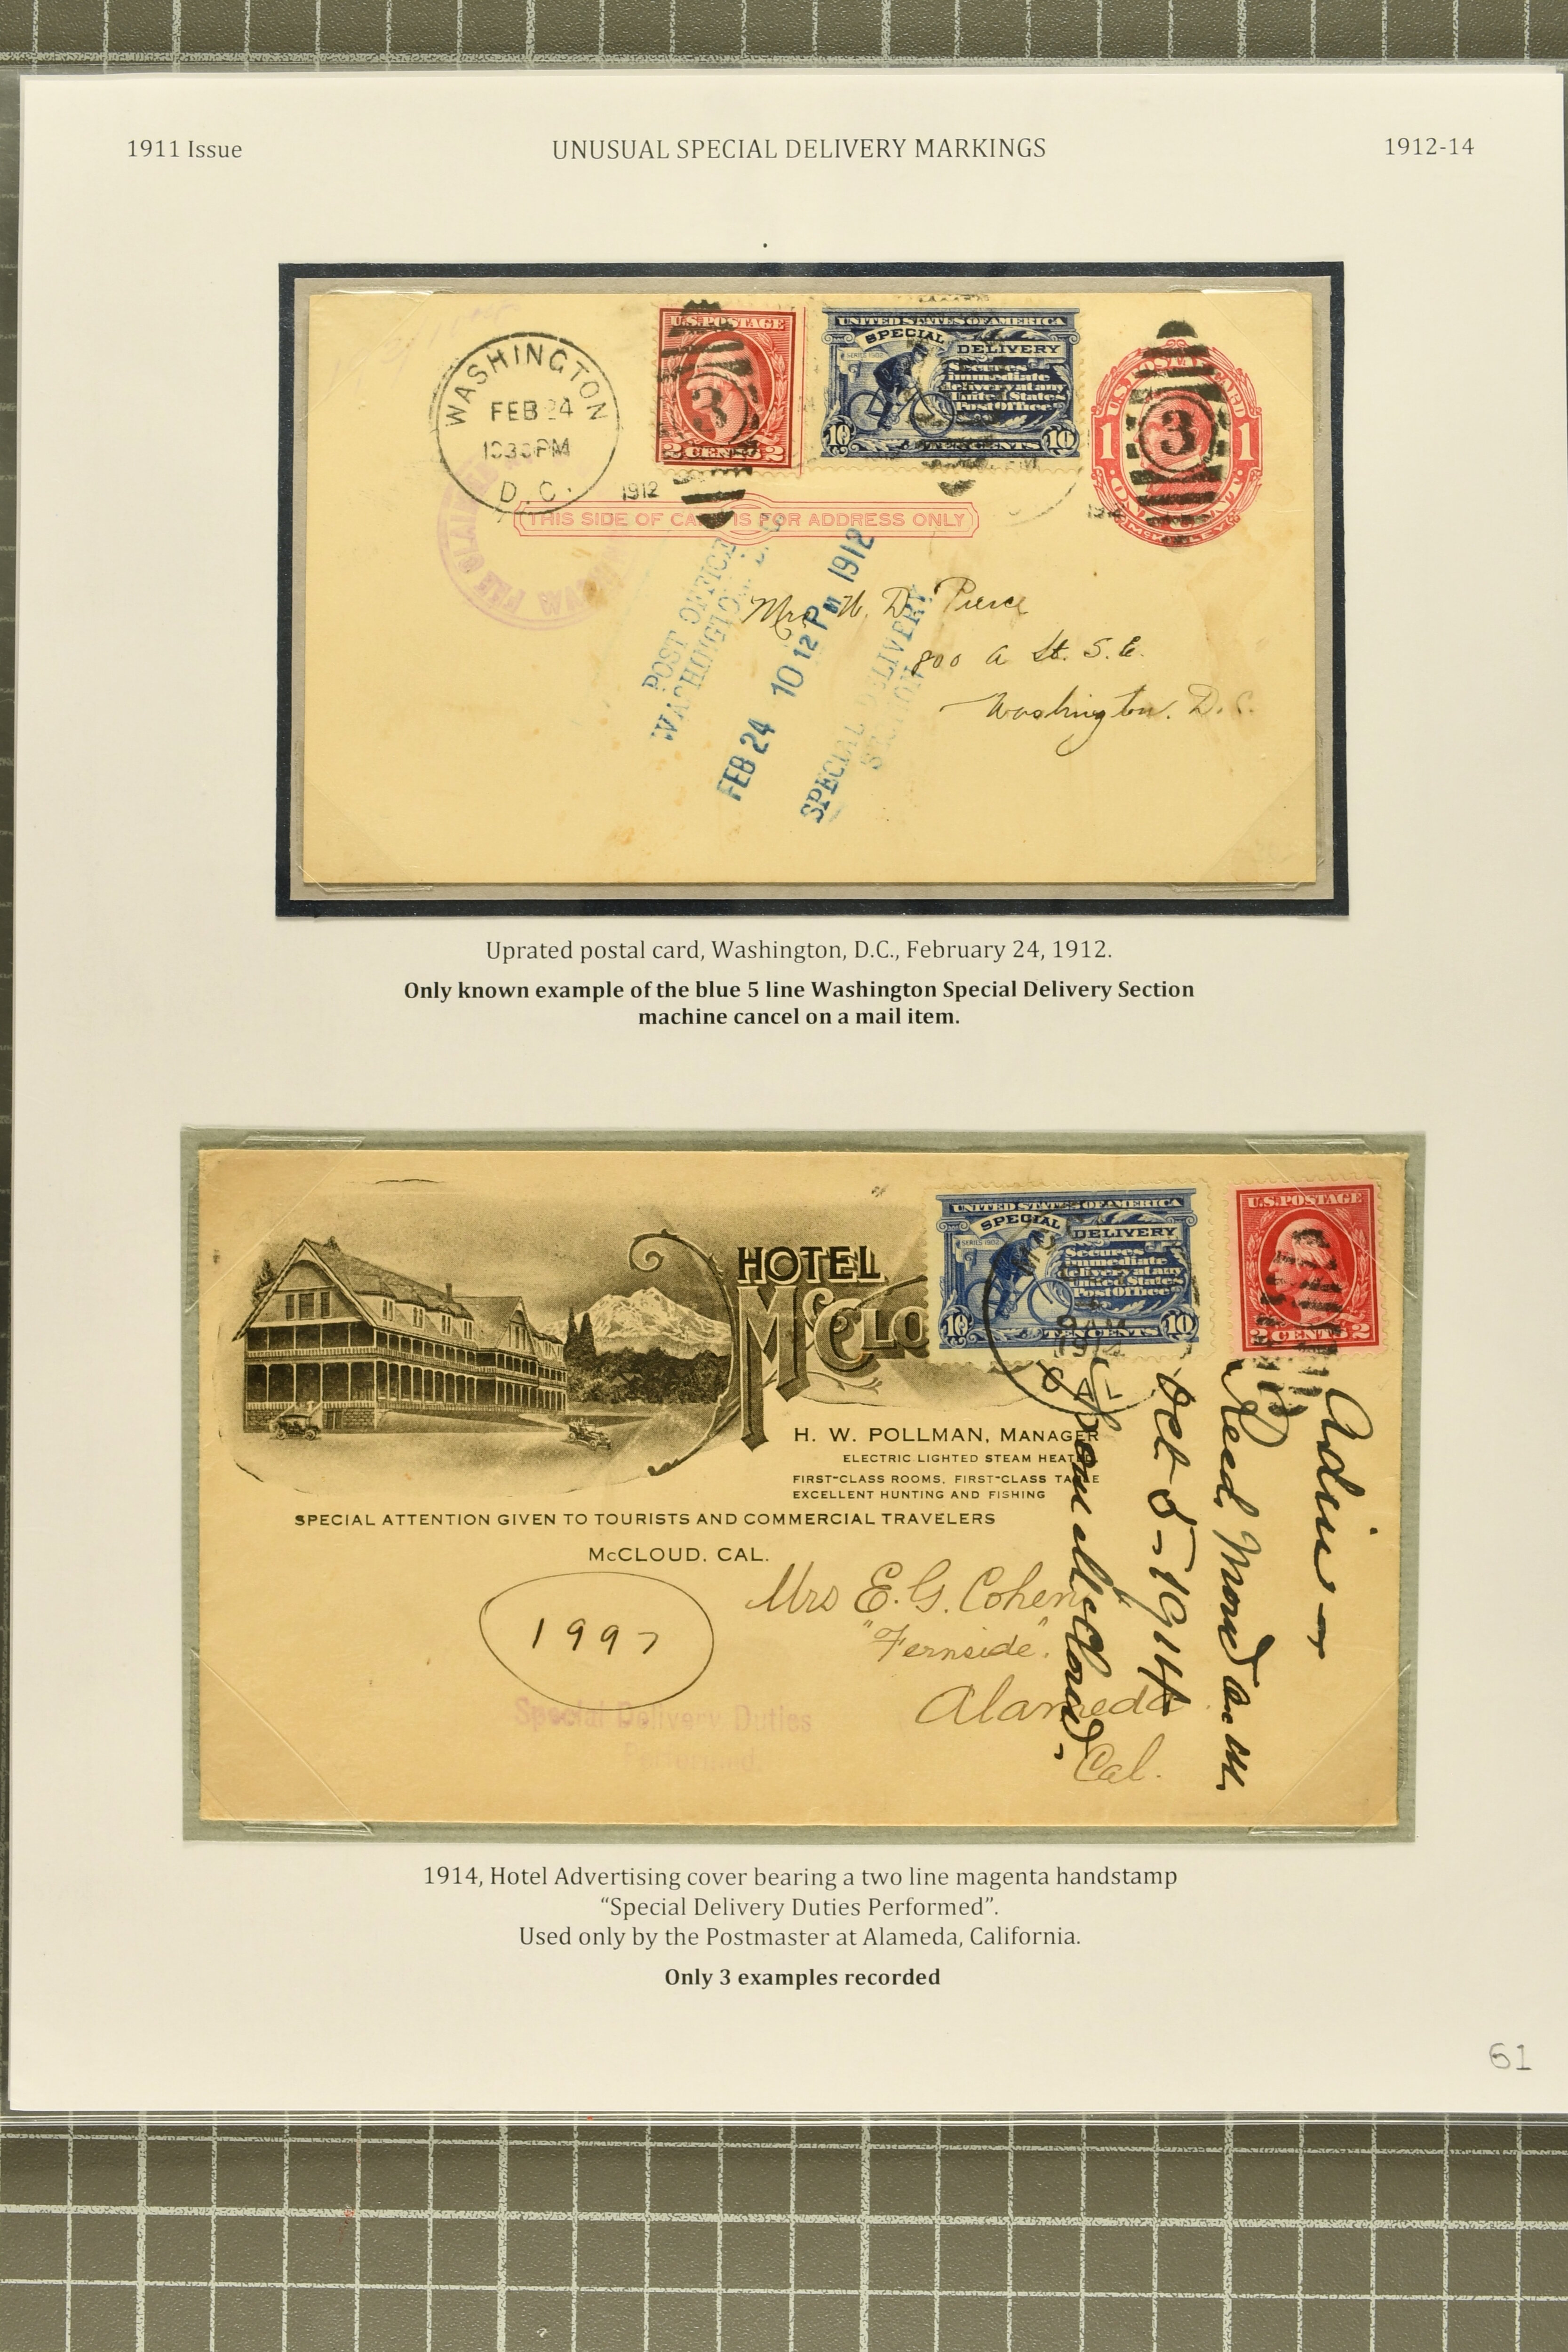 1911 Issue
UNUSUAL SPECIAL DELIVERY MARKINGS
1912-14
WASHINGTON
FEB 24
1030PM
D.C.
1912
U.S. POSTAGE
2 CENTS 2
3
UNITED STATES OF AMERICA
SPECIAL DELIVERY
SERIES 1902
Secures
immediate
delivery at any
United States
Post Office
10 TEN CENTS 10
1 1
3
McKINLEY
THIS SIDE OF CARD IS FOR ADDRESS ONLY
POST OFFICE
WASHINGTON D.C.
FEB 24 10 12 PM 1912
SPECIAL DELIVERY
SECTION
Mrs W. D. Pierce
800 A St. S.E.
Washington. D.C.
Uprated postal card, Washington, D.C., February 24, 1912.
Only known example of the blue 5 line Washington Special Delivery Section
machine cancel on a mail item.
HOTEL
McCLO
UNITED STATES OF AMERICA
SPECIAL DELIVERY
SERIES 1902
Secures
immediate
delivery at any
United States
Post Office
10 TEN CENTS 10
U.S. POSTAGE
2 CENTS 2
9 AM
1914
CAL
H. W. POLLMAN, MANAGER
ELECTRIC LIGHTED STEAM HEATED
FIRST-CLASS ROOMS, FIRST-CLASS TABLE
EXCELLENT HUNTING AND FISHING
SPECIAL ATTENTION GIVEN TO TOURISTS AND COMMERCIAL TRAVELERS
McCLOUD, CAL.
1997
Mrs E. G. Cohen
"Fernside".
Alameda
Cal.
Recd Mond a.m.
Oct 5-1914
from McCloud-
Special Delivery Duties
Performed.
1914, Hotel Advertising cover bearing a two line magenta handstamp
“Special Delivery Duties Performed”.
Used only by the Postmaster at Alameda, California.
Only 3 examples recorded
61